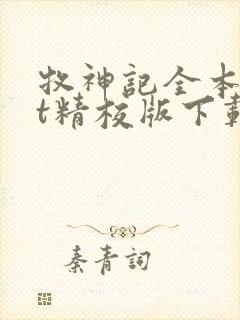 牧神記全本
t精校版下載
秦青詞